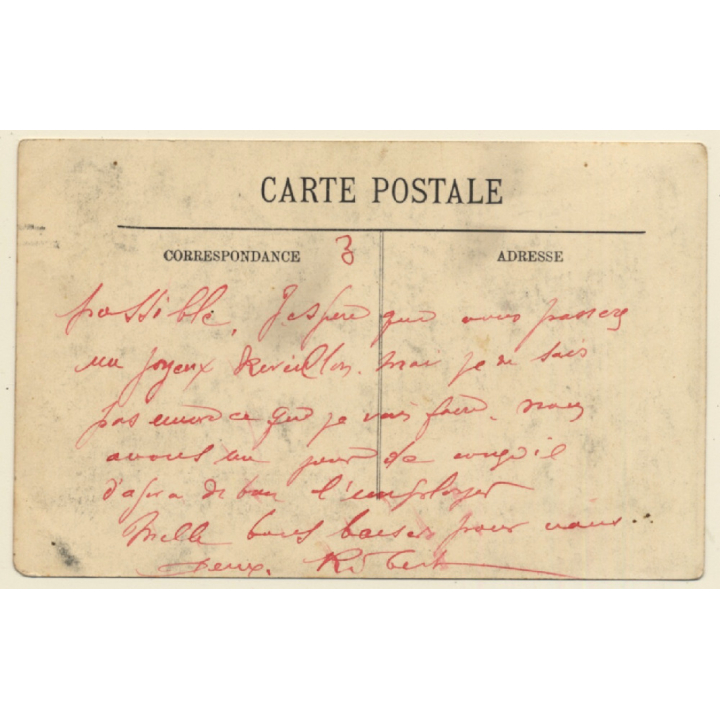 CARTE POSTALE
CORRESPONDANCE 3 ADRESSE
possible. J'espère que vous passerez
un joyeux Réveillon. Mais je ne sais
pas encore ce que je vais faire. nous
avons un jour de congé il
de bon l'employer
Mille bons baisers pour vous
deux. Robert